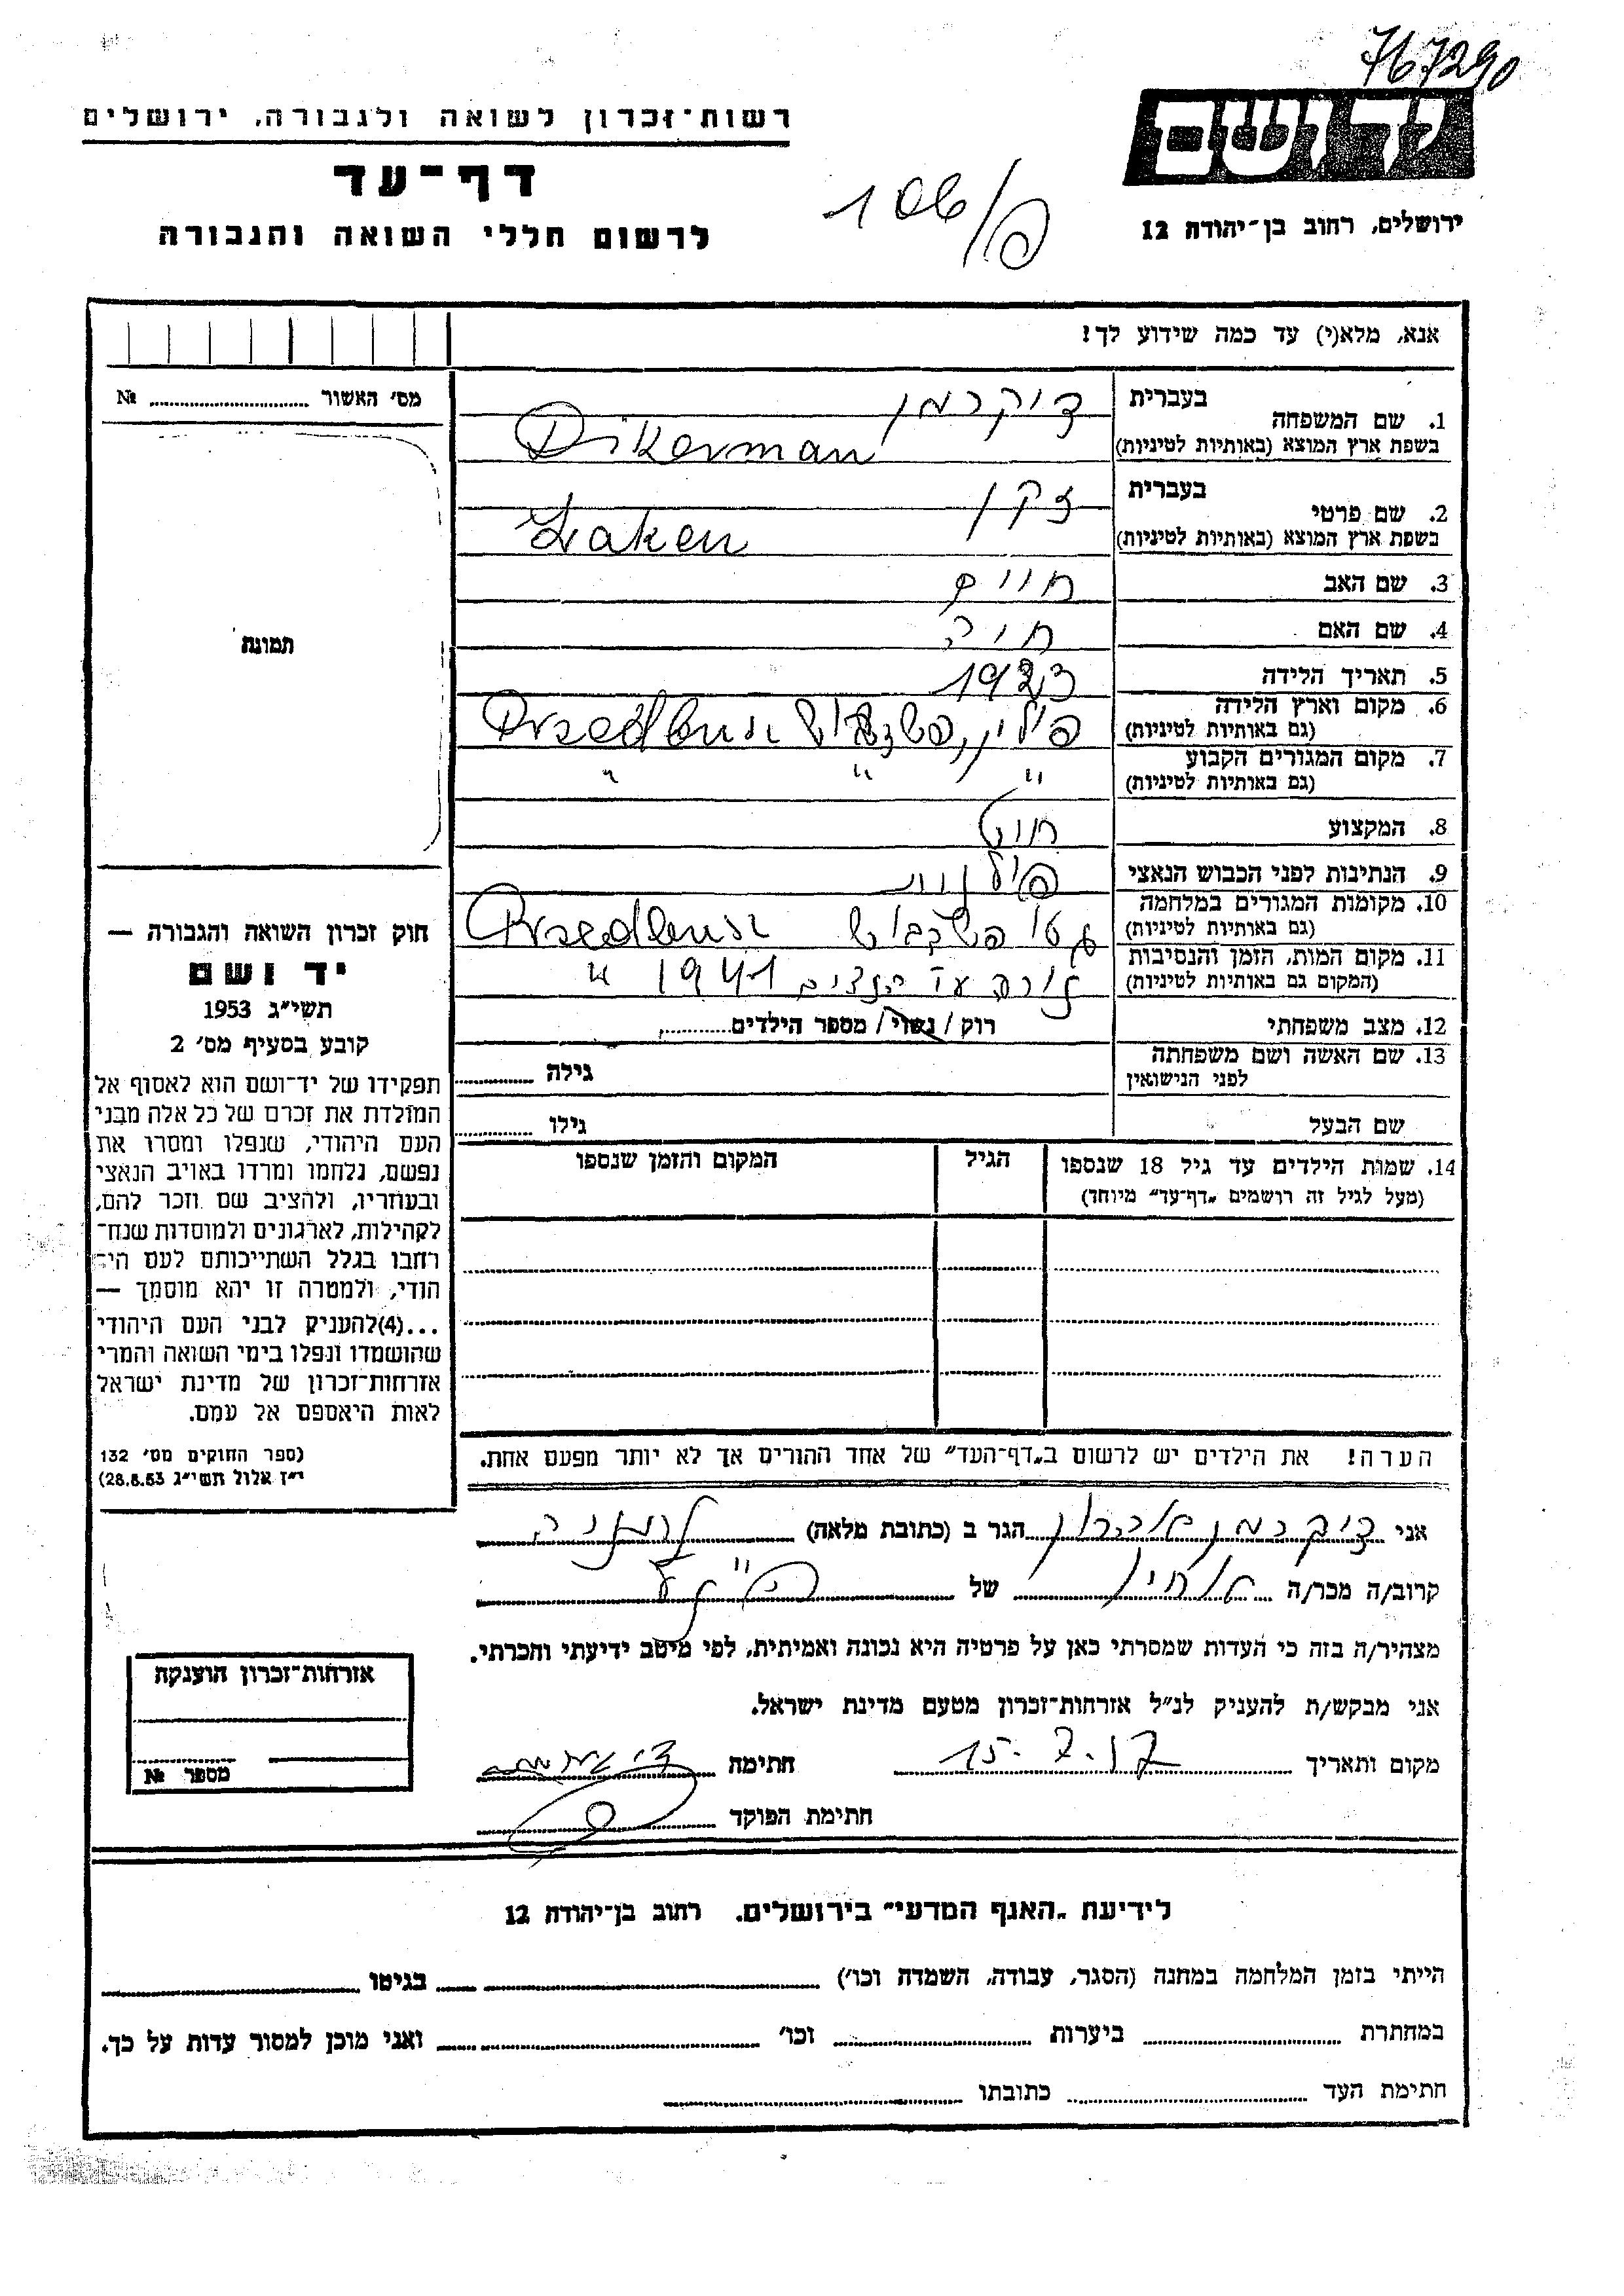 767290
יד ושם
רשות־זכרון לשואה ולגבורה, ירושלים
דף־עד
לרשום חללי השואה והגבורה
106/פ
ירושלים, רחוב בן־יהודה 12
אנא, מלא(י) עד כמה שידוע לך!
מס׳ האשור № 
תמונה
1. שם המשפחה בעברית דיקרמן
בשפת ארץ המוצא (באותיות לטיניות) Dikerman
2. שם פרטי בעברית זקן
בשפת ארץ המוצא (באותיות לטיניות) Zaken
3. שם האב חיים
4. שם האם חיה
5. תאריך הלידה 1923
6. מקום וארץ הלידה (גם באותיות לטיניות) פולין,
7. מקום המגורים הקבוע (גם באותיות לטיניות) " " "
8. המקצוע חייט
9. הנתינות לפני הכבוש הנאצי פולנית
10. מקומות המגורים במלחמה (גם באותיות לטיניות) גטו
11. מקום המות, הזמן והנסיבות (המקום גם באותיות לטיניות) נורה ע״י הנצים 1941 "
12. מצב משפחתי רוק/נשוי/מספר הילדים
13. שם האשה ושם משפחתה לפני הנישואין גילה
שם הבעל גילו
14. שמות הילדים עד גיל 18 שנספו הגיל המקום והזמן שנספו
(מעל לגיל זה רושמים „דף־עד״ מיוחד)
הערה! את הילדים יש לרשום ב„דף־העד״ של אחד ההורים אך לא יותר מפעם אחת.
חוק זכרון השואה והגבורה —
יד ושם
תשי״ג 1953
קובע בסעיף מס׳ 2
תפקידו של יד־ושם הוא לאסוף אל
המולדת את זכרם של כל אלה מבני
העם היהודי, שנפלו ומסרו את
נפשם, נלחמו ומרדו באויב הנאצי
ובעוזריו, ולהציב שם וזכר להם,
לקהילות, לארגונים ולמוסדות שנח־
רחבו בגלל השתייכותם לעם הי־
הודי, ולמטרה זו יהא מוסמך —
...(4)להעניק לבני העם היהודי
שהושמדו ונפלו בימי השואה והמרי
אזרחות־זכרון של מדינת ישראל
לאות היאספם אל עמם.
(ספר החוקים מס׳ 132
י״ז אלול תשי״ג 28.8.53)
אני דיקרמן אהרון הגר ב (כתובת מלאה) נתניה
קרוב/ה מכר/ה אחיו של
מצהיר/ה בזה כי העדות שמסרתי כאן על פרטיה היא נכונה ואמיתית, לפי מיטב ידיעתי והכרתי.
אני מבקש/ת להעניק לנ״ל אזרחות־זכרון מטעם מדינת ישראל.
מקום ותאריך 15.7.57 חתימה
חתימת הפוקד
אזרחות־זכרון הוענקה
מספר №
לידיעת „האגף המדעי״ בירושלים. רחוב בן־יהודה 12
הייתי בזמן המלחמה במחנה (הסגר, עבודה, השמדה וכו׳) בגיטו
במחתרת ביערות וכו׳ ואני מוכן למסור עדות על כך.
חתימת העד כתובתו